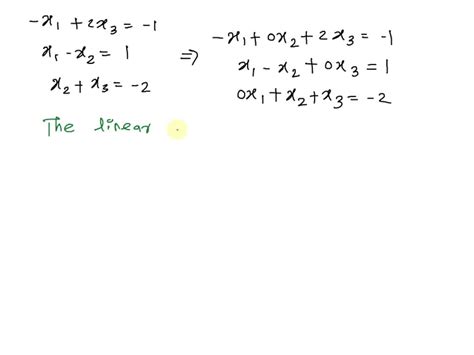 -x₁ + 2x₃ = -1
x₁ - x₂ = 1
x₂ + x₃ = -2
⇒
-x₁ + 0x₂ + 2x₃ = -1
x₁ - x₂ + 0x₃ = 1
0x₁ + x₂ + x₃ = -2
The linear